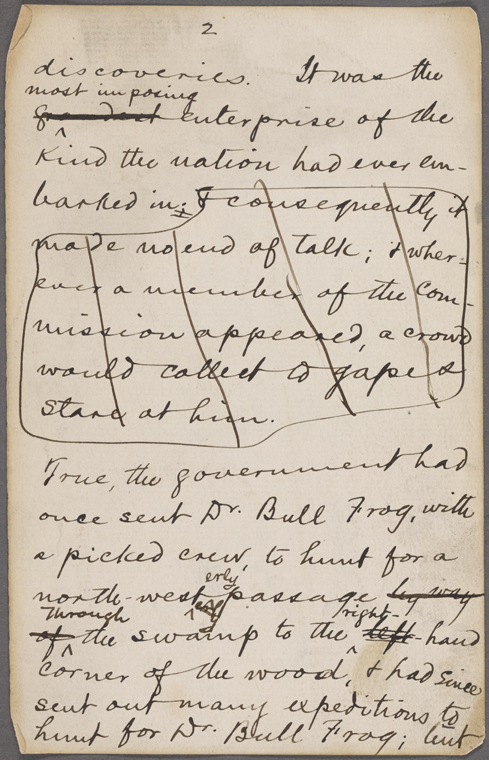 2
discoveries. It was the
most imposing
grandest enterprise of the
kind the nation had ever em-
barked in; & consequently it
made no end of talk; & wher-
ever a member of the Com-
mission appeared, a crowd
would collect to gape &
stare at him.
True, the government had
once sent Dr. Bull Frog, with
a picked crew, to hunt for a
erly
north-west passage by way
through right-
of the swamp to the left-hand
corner of the wood, & had since
sent out many expeditions to
hunt for Dr. Bull Frog; but